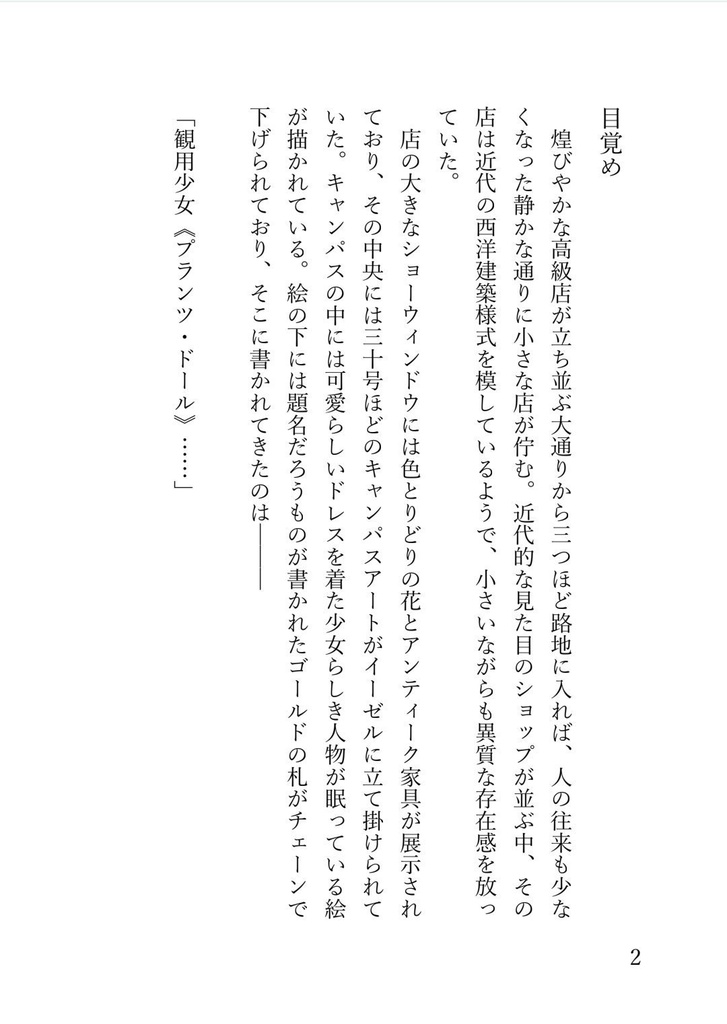 目覚め
　煌びやかな高級店が立ち並ぶ大通りから三つほど路地に入れば、人の往来も少な
くなった静かな通りに小さな店が佇む。近代的な見た目のショップが並ぶ中、その
店は近代の西洋建築様式を模しているようで、小さいながらも異質な存在感を放っ
ていた。
　店の大きなショーウィンドウには色とりどりの花とアンティーク家具が展示され
ており、その中央には三十号ほどのキャンパスアートがイーゼルに立て掛けられて
いた。キャンパスの中には可愛らしいドレスを着た少女らしき人物が眠っている絵
が描かれている。絵の下には題名だろうものが書かれたゴールドの札がチェーンで
下げられており、そこに書かれてきたのは――
「観用少女《プランツ・ドール》……」
2